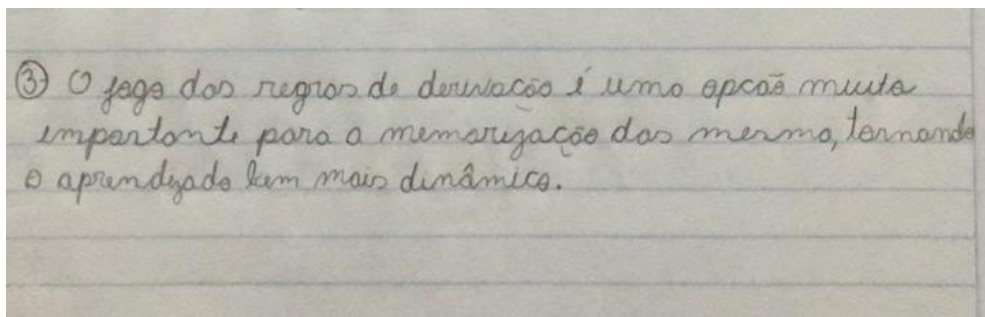 ③ O jogo das regras de derivação é uma opcaõ muita
importante para a memorização das mesma, tornando
o aprendizado bem mais dinâmico.